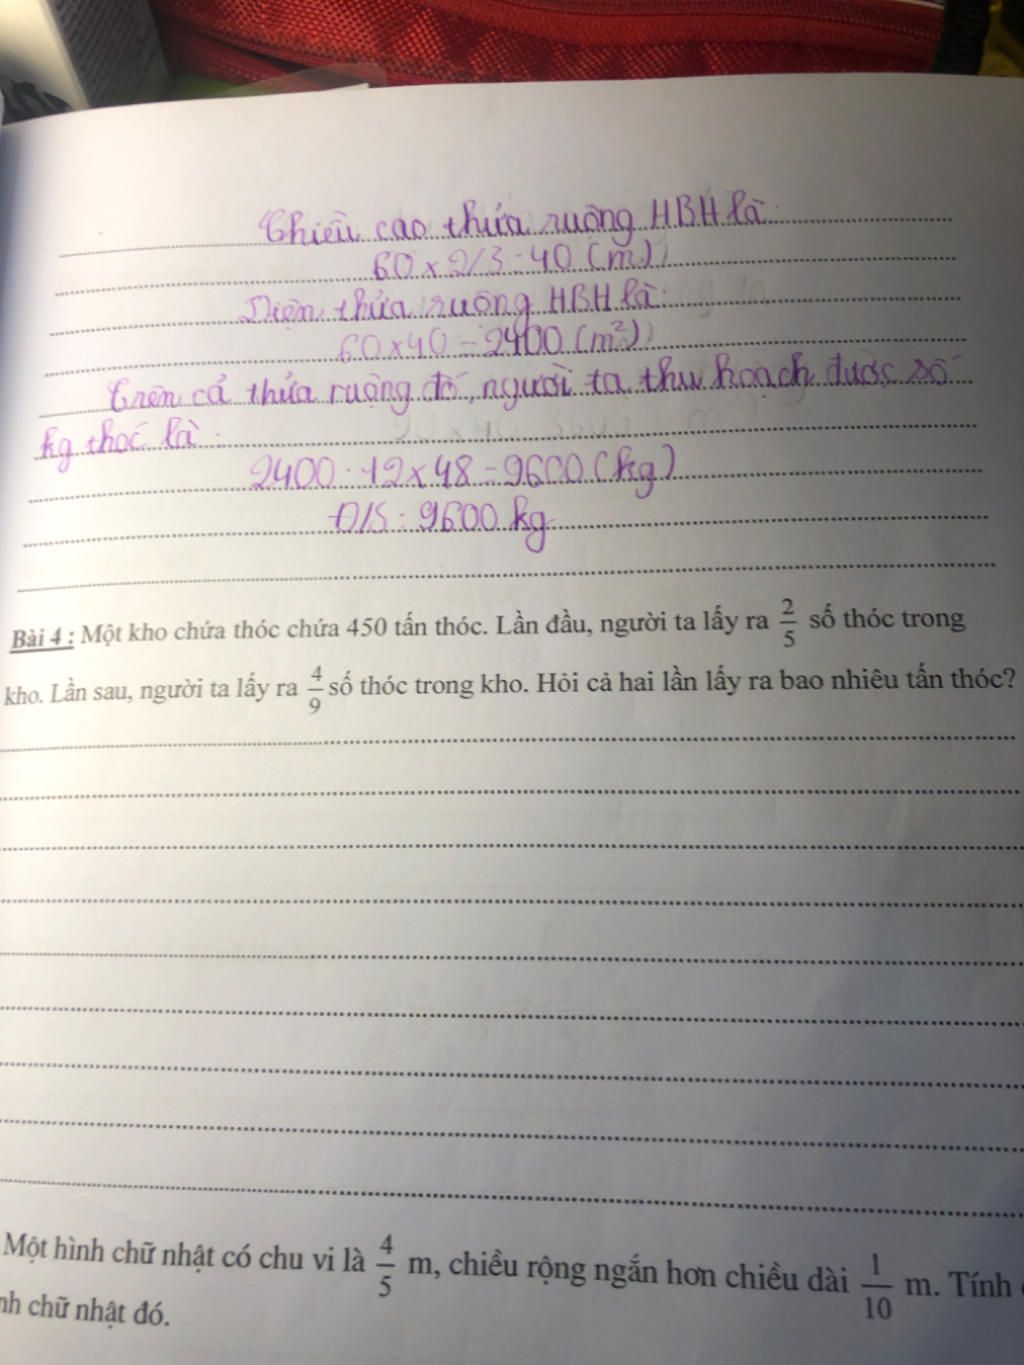 Chiều cao thửa ruộng HBH là:
60 x 2/3 = 40 (m)
Diện thửa ruộng HBH là:
60 x 40 = 2400 (m²)
Trên cả thửa ruộng đó, người ta thu hoạch được số
kg thóc là:
2400 : 12 x 48 = 9600 (kg)
Đ/S : 9600 kg
Bài 4 : Một kho chứa thóc chứa 450 tấn thóc. Lần đầu, người ta lấy ra 2/5 số thóc trong
kho. Lần sau, người ta lấy ra 4/9 số thóc trong kho. Hỏi cả hai lần lấy ra bao nhiêu tấn thóc?
Một hình chữ nhật có chu vi là 4/5 m, chiều rộng ngắn hơn chiều dài 1/10 m. Tính
nh chữ nhật đó.